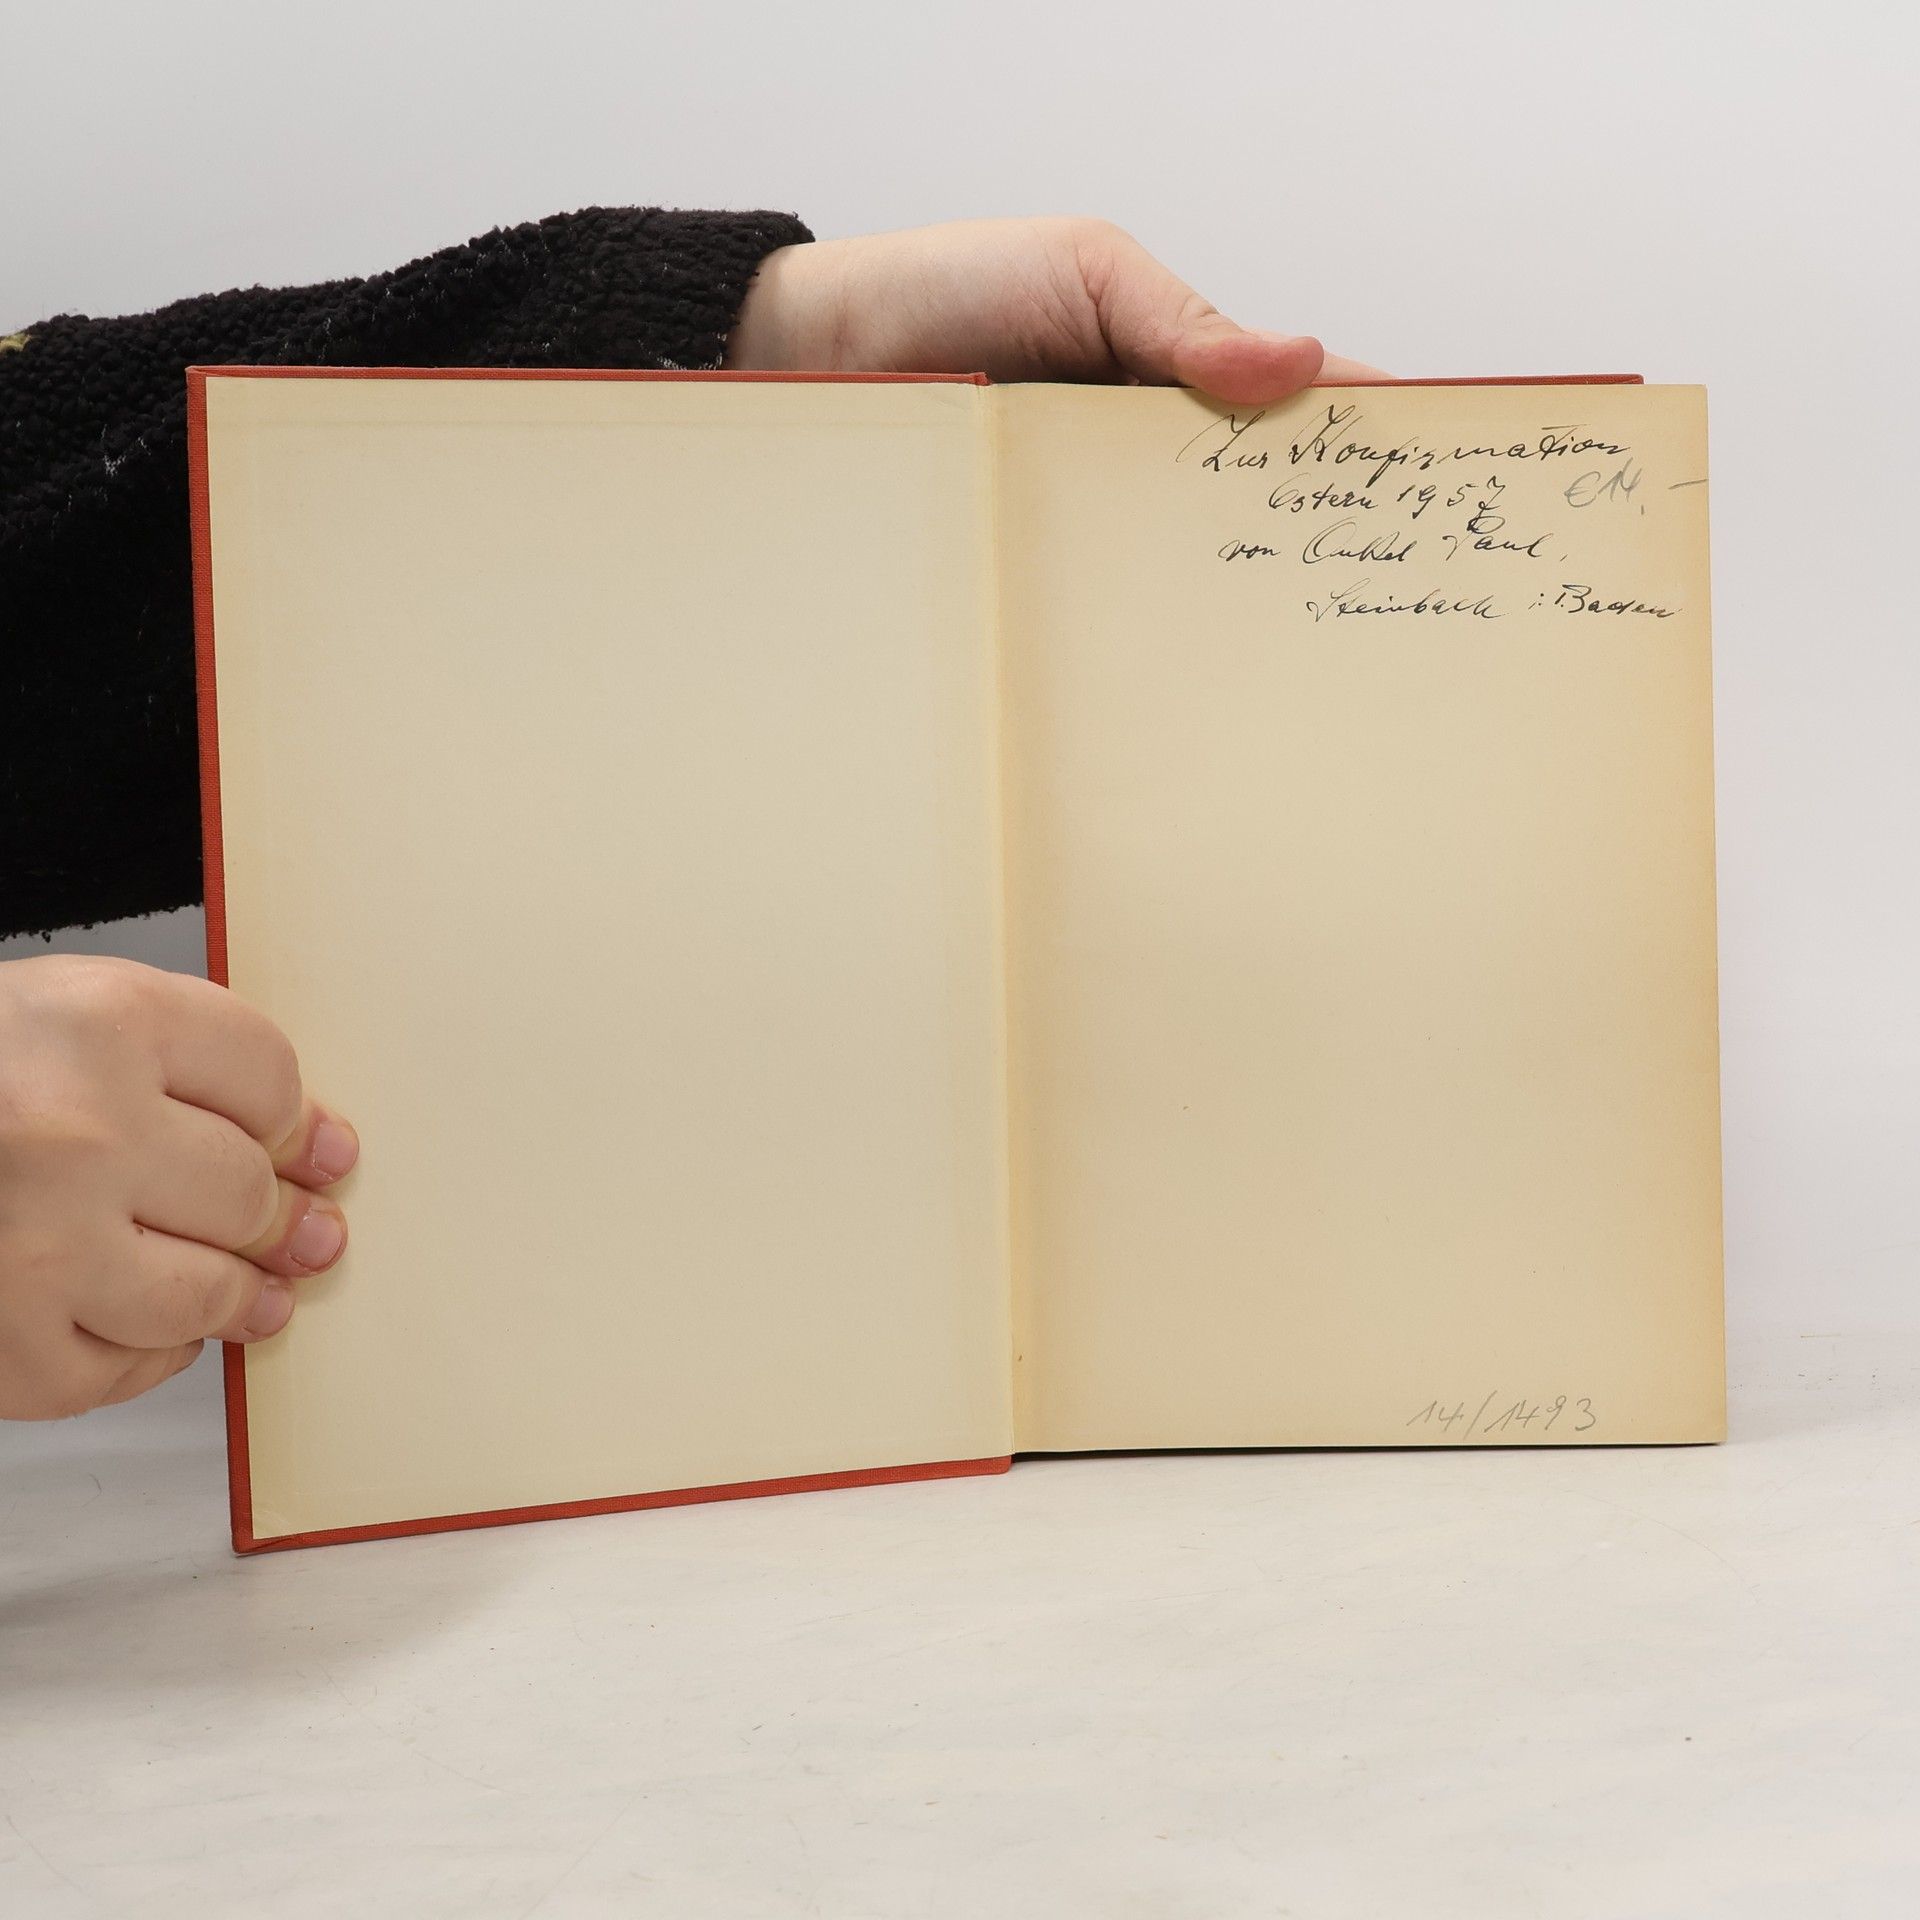 Zur Konfirmation
Ostern 1957
€ 14,–
von Onkel Paul,
Steinbach i. Baden
14/1493